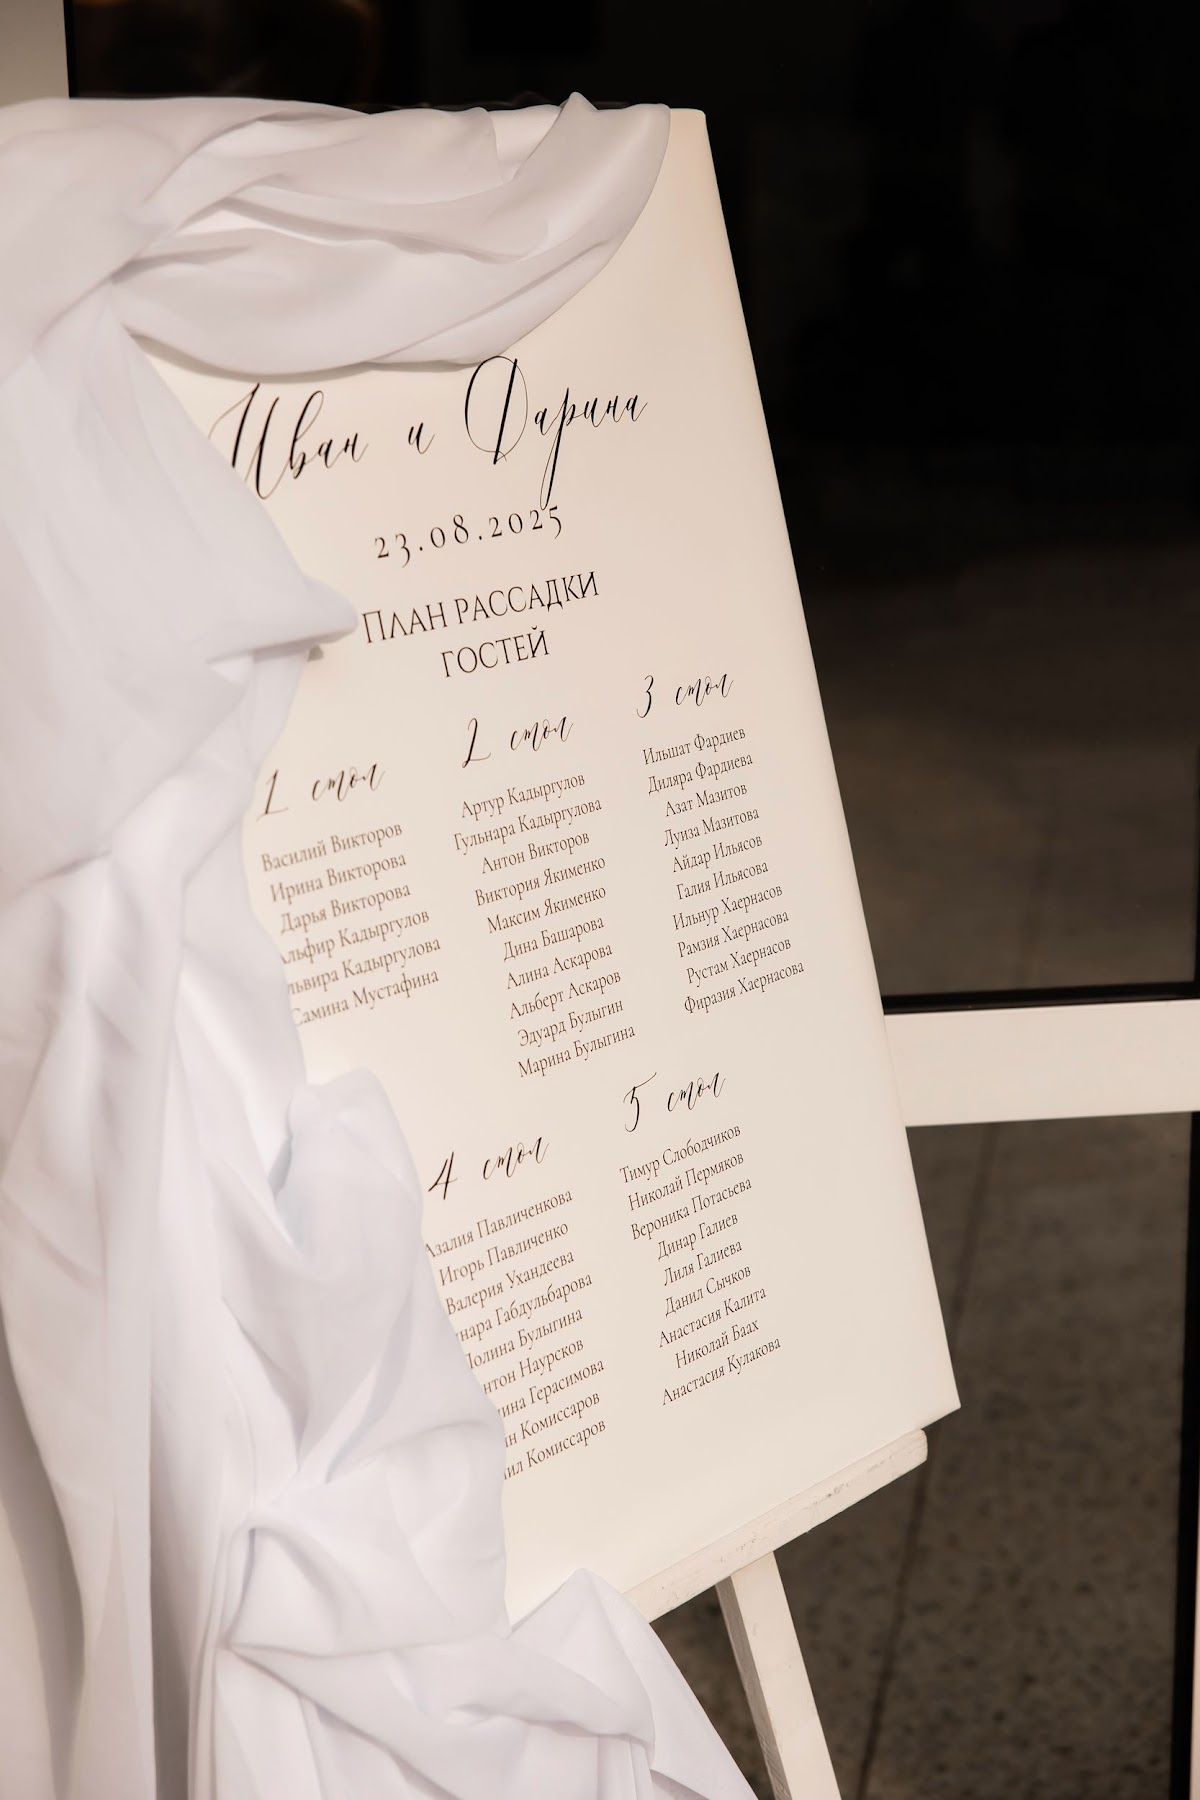 Иван и Дарина
23.08.2025
План рассадки
гостей
1 стол
Василий Викторов
Ирина Викторова
Дарья Викторова
Кадыргулов
Кадыргулова
Самина Мустафина
2 стол
Артур Кадыргулов
Гульнара Кадыргулова
Антон Викторов
Виктория Якименко
Максим Якименко
Дина Башарова
Алина Аскарова
Альберт Аскаров
Эдуард Булыгин
Марина Булыгина
3 стол
Ильшат Фардиев
Диляра Фардиева
Азат Мазитов
Луиза Мазитова
Айдар Ильясов
Галия Ильясова
Ильнур Хаернасов
Рамзия Хаернасова
Рустам Хаернасов
Фиразия Хаернасова
4 стол
Азалия Павличенкова
Игорь Павличенко
Валерия Ухандеева
Габдульбарова
Полина Булыгина
Наурсков
Герасимова
Комиссаров
Комиссаров
5 стол
Тимур Слободчиков
Николай Пермяков
Вероника Потасьева
Динар Галиев
Лиля Галиева
Данил Сычков
Анастасия Калита
Николай Баах
Анастасия Кулакова